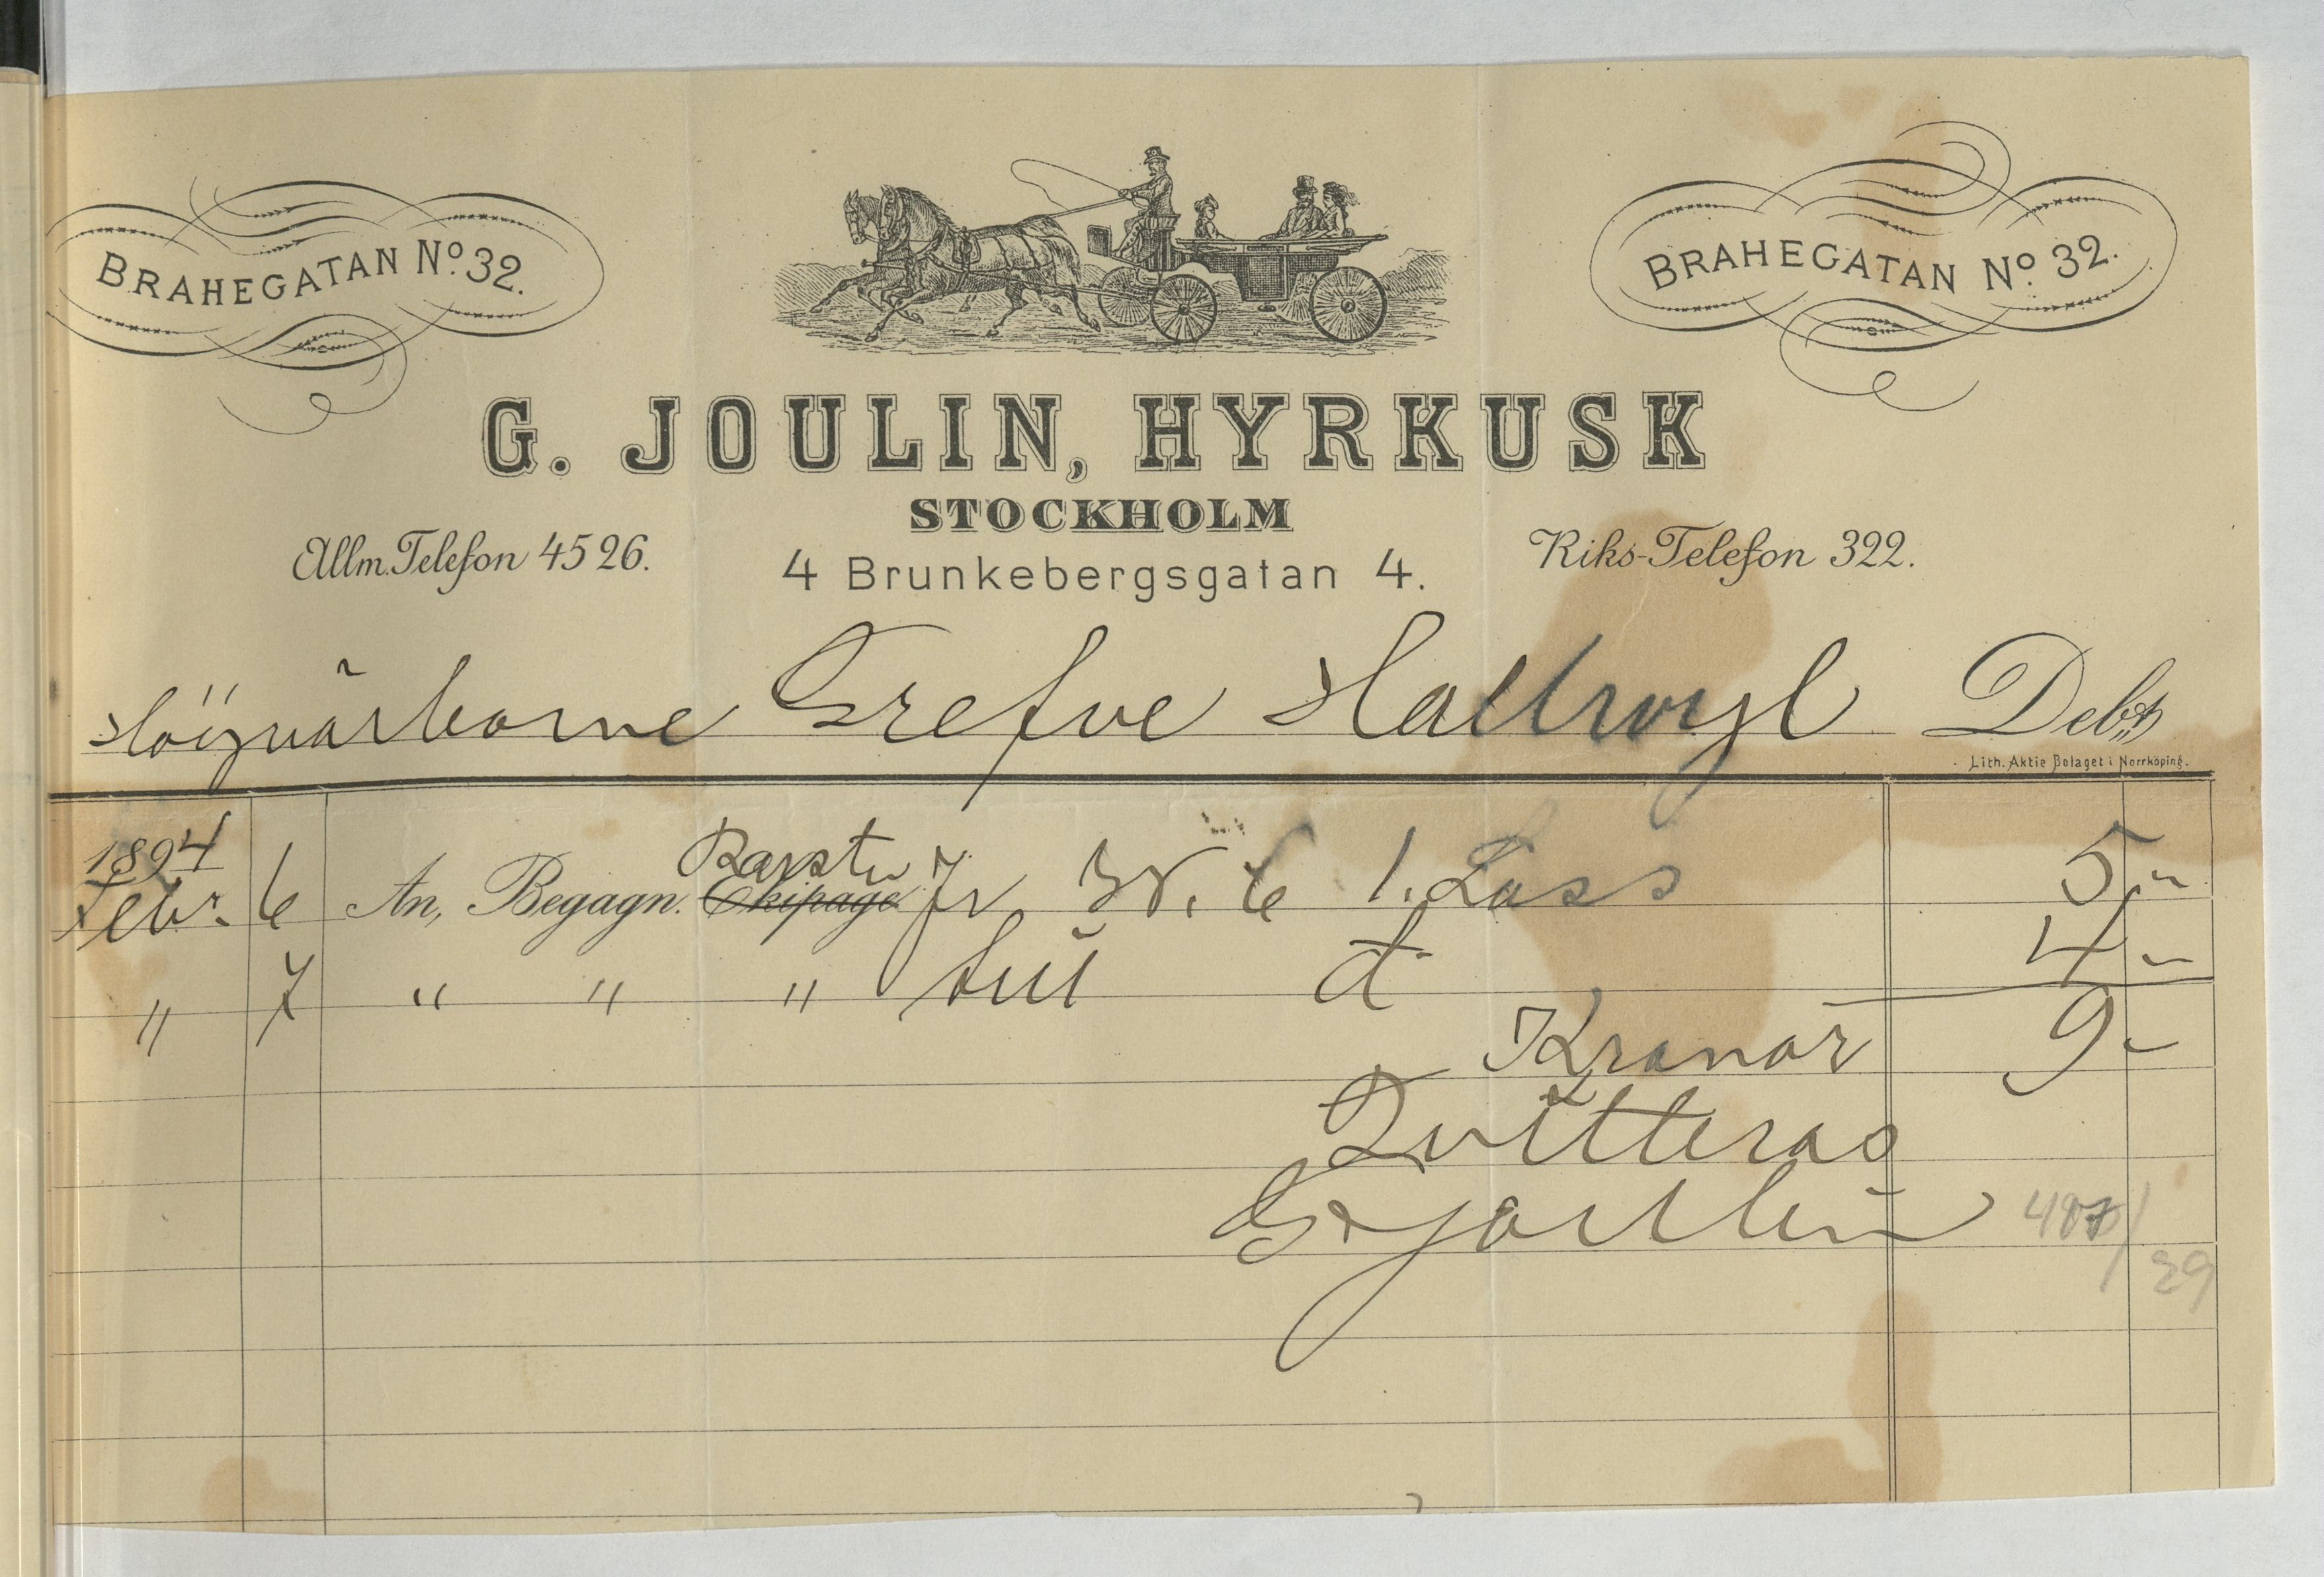 BRAHEGATAN No. 32.
BRAHEGATAN No. 32.
G. JOULIN, HYRKUSK
STOCKHOLM
Allm. Telefon 4526.
4 Brunkebergsgatan 4.
Riks-Telefon 322.
Högvärborne Grefve Hallwyl Debet
Lith. Aktie Bolaget i Norrköping.
1894
Febr. 6 An, Begagn. Ekipage 1. Lass 5 -
" 7 " " " 4 -
Kronor 9 -
Qvitteras
G Joulin
29